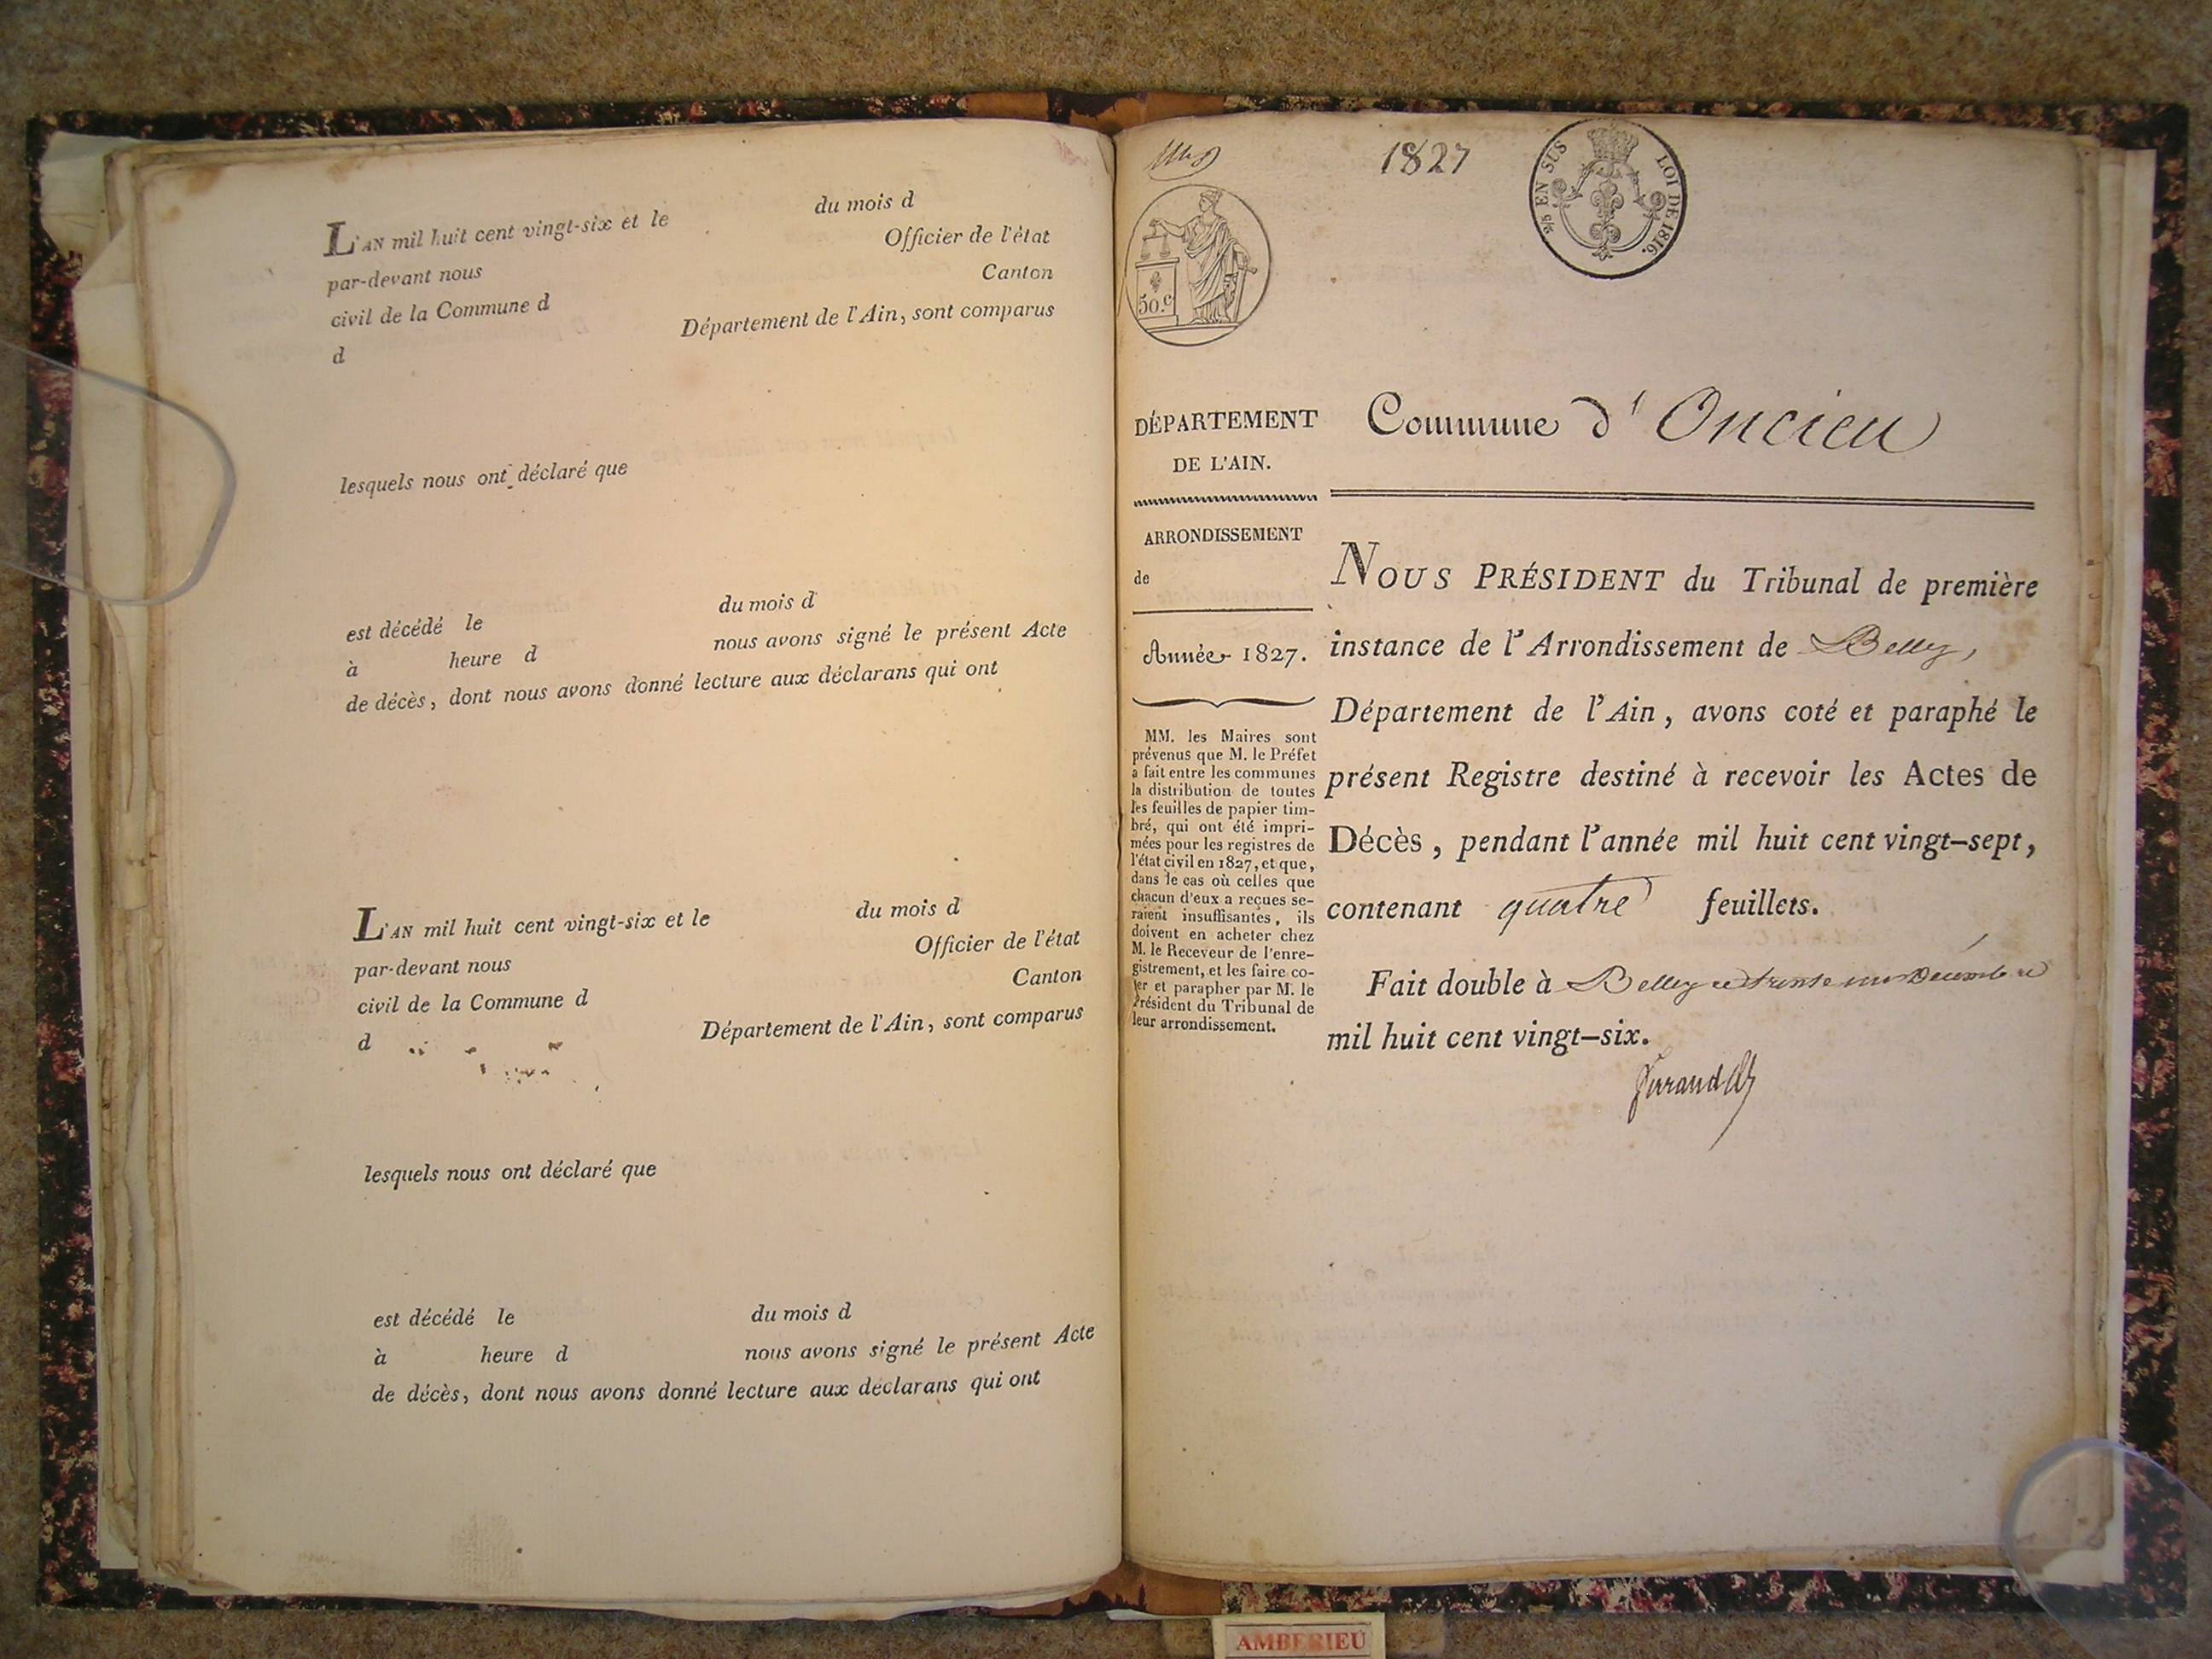 L'AN mil huit cent vingt-six et le du mois d
par-devant nous Officier de l'état
civil de la Commune d Canton
d Département de l'Ain, sont comparus
lesquels nous ont déclaré que
est décédé le du mois d
à heure d nous avons signé le présent Acte
de décès, dont nous avons donné lecture aux déclarans qui ont
L'AN mil huit cent vingt-six et le du mois d
par-devant nous Officier de l'état
civil de la Commune d Canton
d Département de l'Ain, sont comparus
lesquels nous ont déclaré que
est décédé le du mois d
à heure d nous avons signé le présent Acte
de décès, dont nous avons donné lecture aux déclarans qui ont
1827
EN SUS LOI DE 1816.
50.c
DÉPARTEMENT
DE L'AIN.
ARRONDISSEMENT
de
Année 1827.
MM. les Maires sont
prévenus que M. le Préfet
a fait entre les communes
la distribution de toutes
les feuilles de papier tim-
bré, qui ont été impri-
mées pour les registres de
l'état civil en 1827, et que,
dans le cas où celles que
chacun d'eux a reçues se-
raient insuffisantes, ils
doivent en acheter chez
M. le Receveur de l'enre-
gistrement, et les faire co-
ter et parapher par M. le
Président du Tribunal de
leur arrondissement.
Commune d'Oncieu
NOUS PRÉSIDENT du Tribunal de première
instance de l'Arrondissement de Belley,
Département de l'Ain, avons coté et paraphé le
présent Registre destiné à recevoir les Actes de
Décès, pendant l'année mil huit cent vingt-sept,
contenant quatre feuillets.
Fait double à Belley ce trente un Décembre
mil huit cent vingt-six.
AMBERIEU